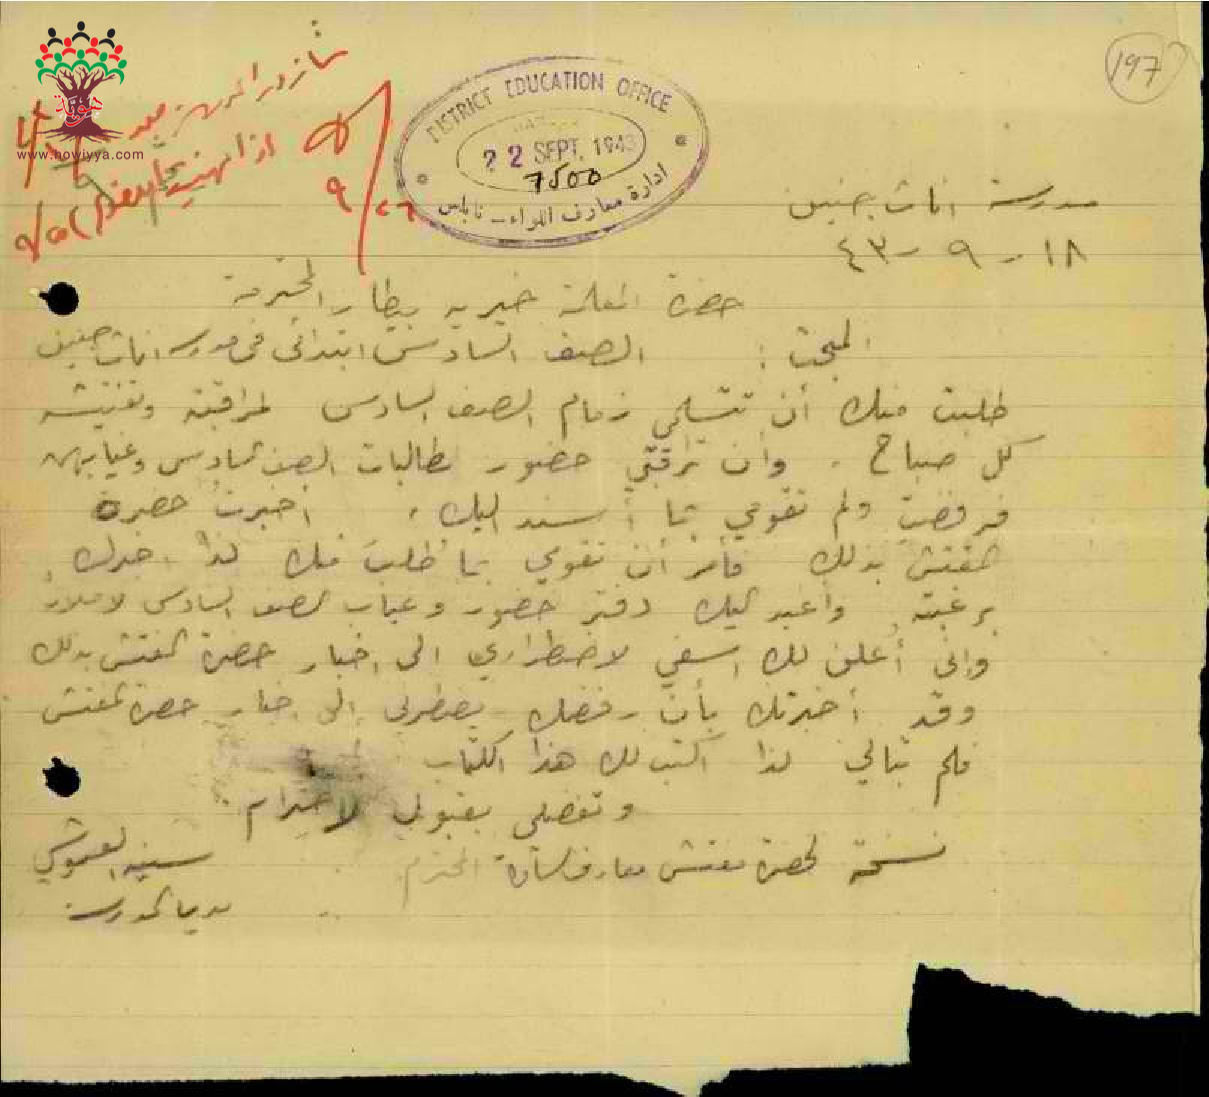 197
هوية
www.howiyya.com
DISTRICT EDUCATION OFFICE
22 SEPT. 1943
7500
ادارة معارف اللواء - نابلس
مدرسة اناث جنين
١٨ - ٩ - ٤٣
حضرة المعلمة خيريه بيطار المحترمة
المبحث : الصف السادس ابتدائي في مدرسة اناث جنين
طلبت منك أن تتسلمي زمام الصف السادس لمراقبته وتفتيشه
كل صباح . وان تراقبي حضور طالبات الصف السادس وغيابهن
فرفضت ولم تقومي بما أسند اليك . أخبرت حضرة
المفتش بذلك فأمر أن تقومي بما طلب منك لذا اخبرك
برغبته وأعيد اليك دفتر حضور وغياب الصف السادس
واني أعلن لك اسفي لاضطراري الى اخبار حضرة المفتش بذلك
وقد أخبرتك بأن رفضك يضطرني الى اخبار حضرة المفتش
فلم تبالي لذا اكتب لك هذا الكتاب
وتفضلي بقبول الاحترام
نسخة لحضرة مفتش معارف المحترم
مديرة المدرسة